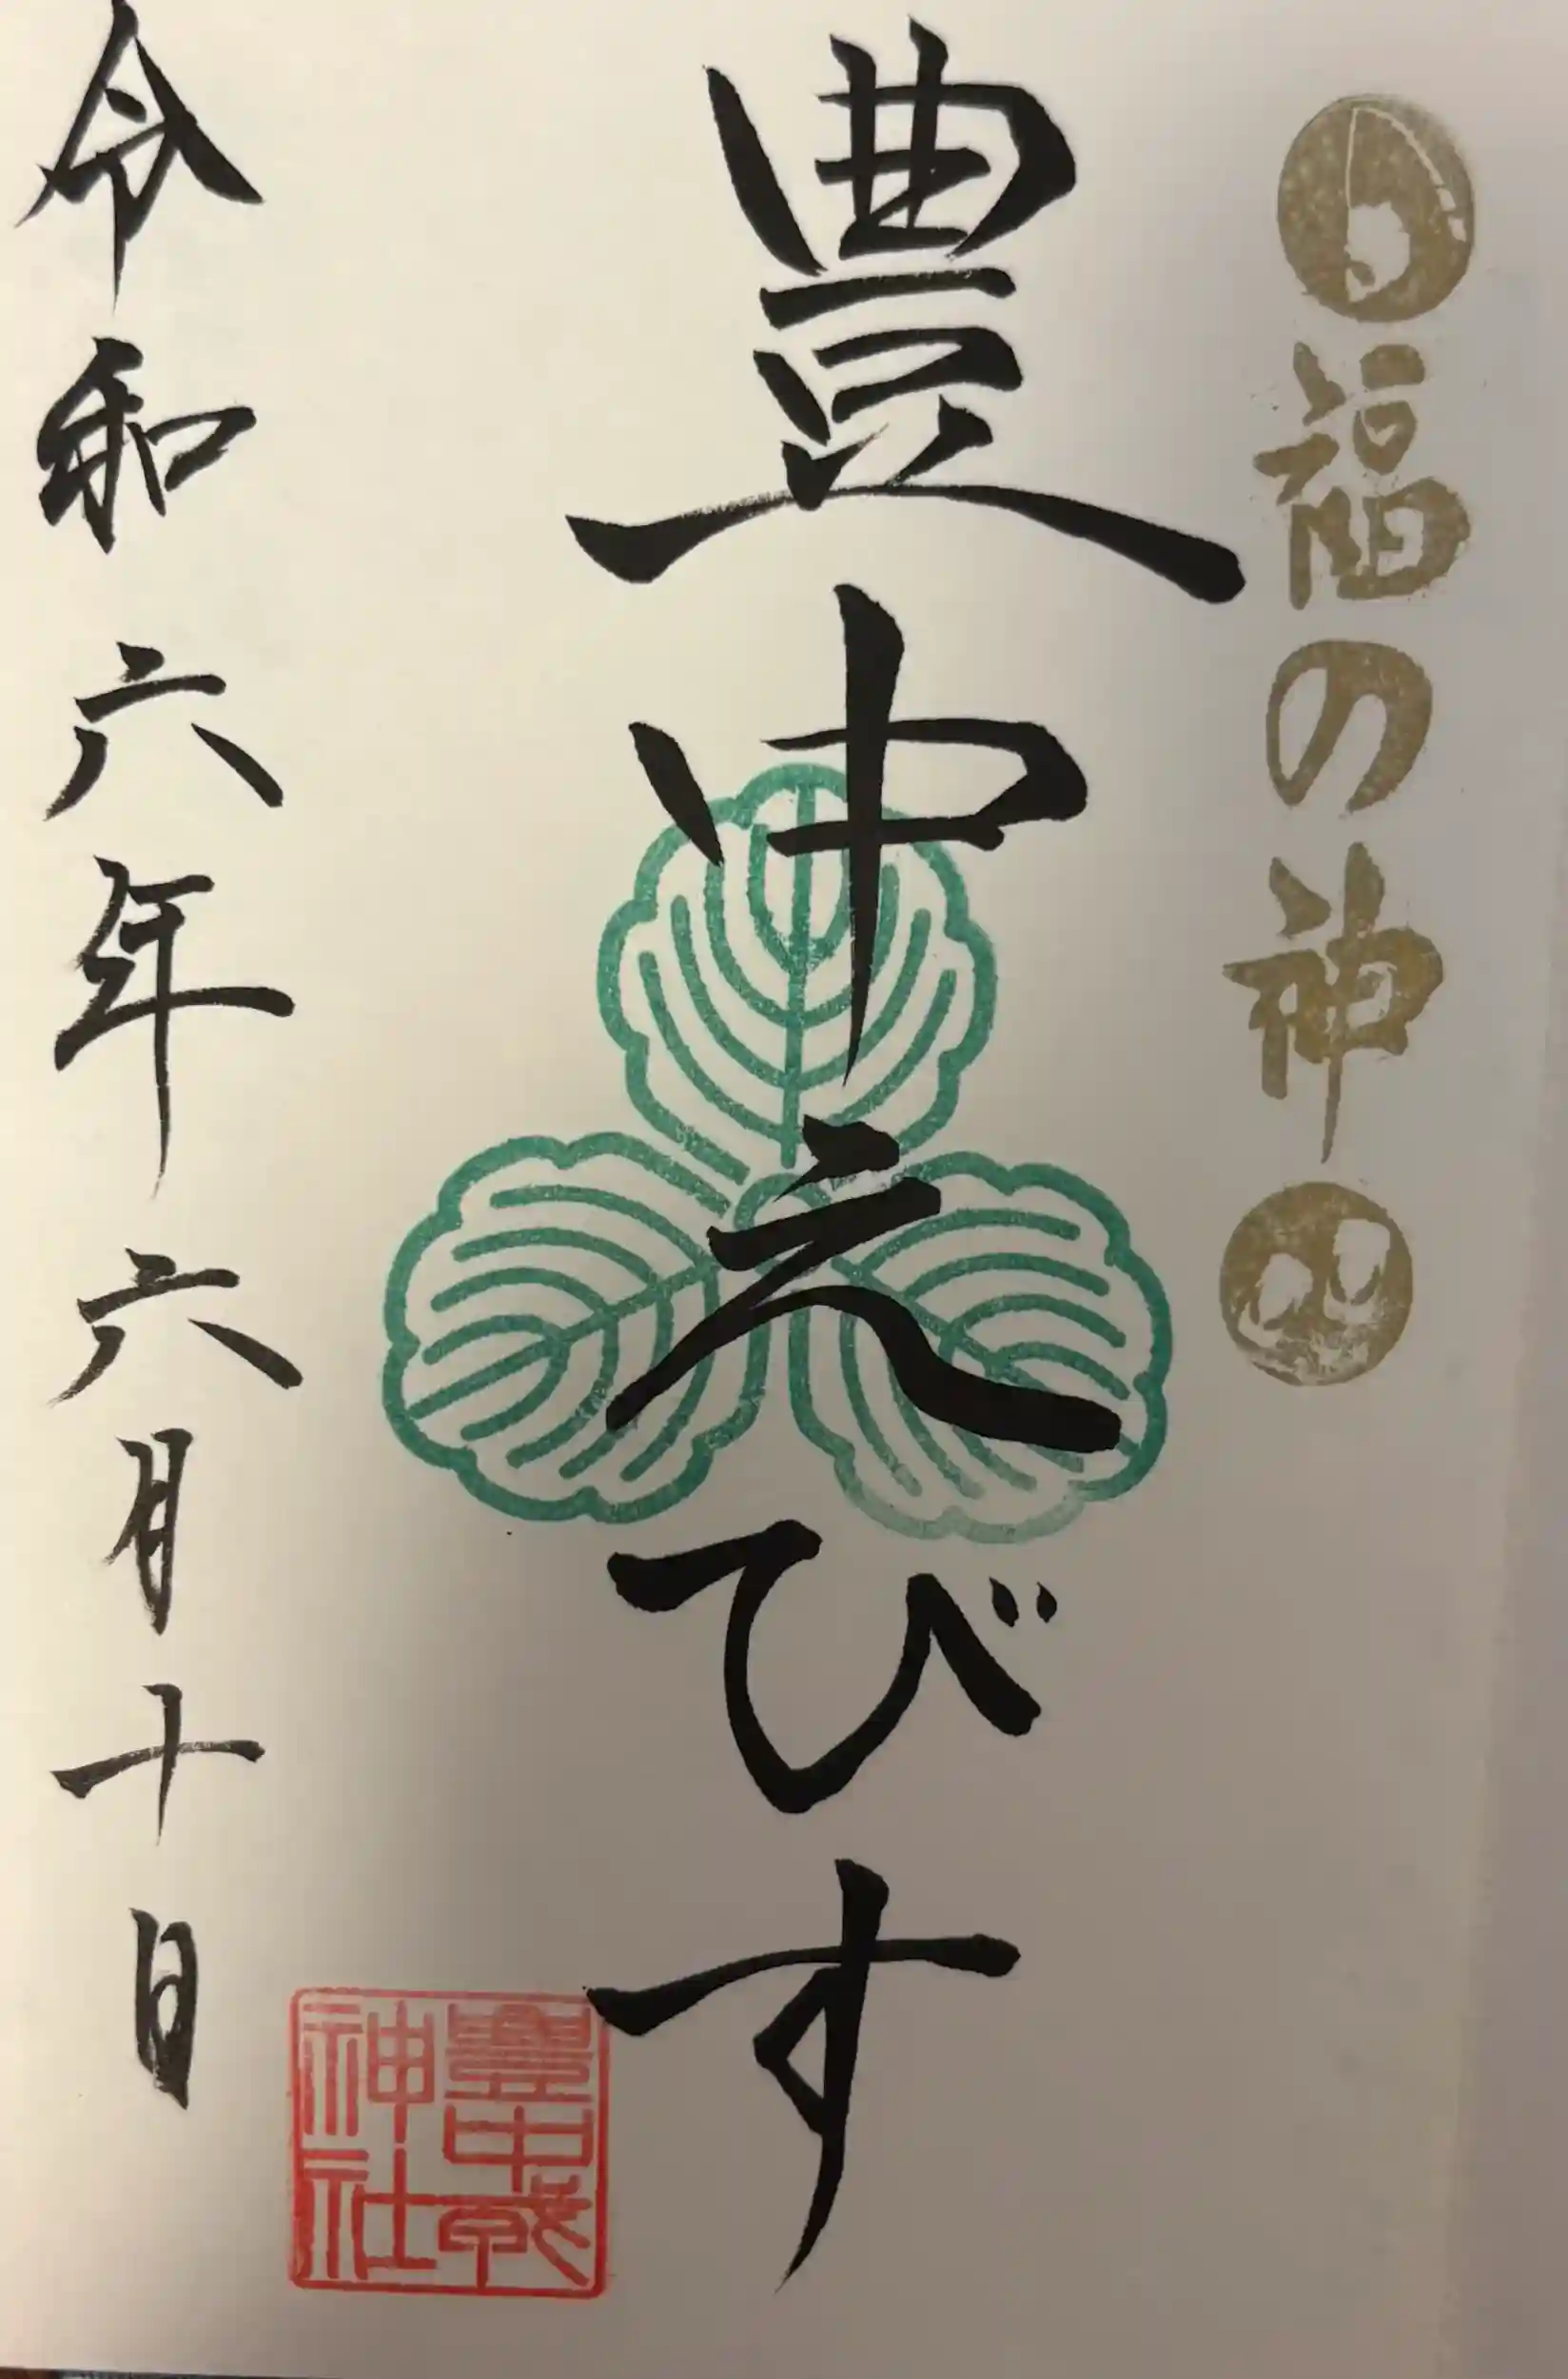 福の神
豊中えびす
豊中戎
神社
令和六年六月十日